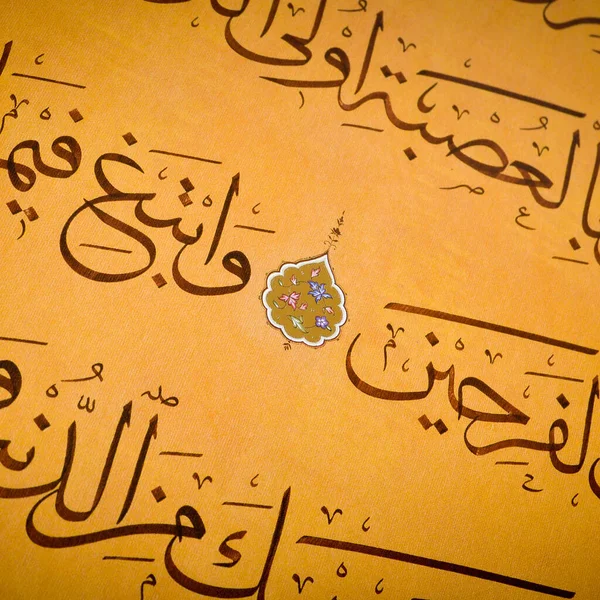 بِالْعُصْبَةِ اُولِى
الْفَرِحينَ وَابْتَغِ فيمَا
كَ مِنَ الدُّنْ